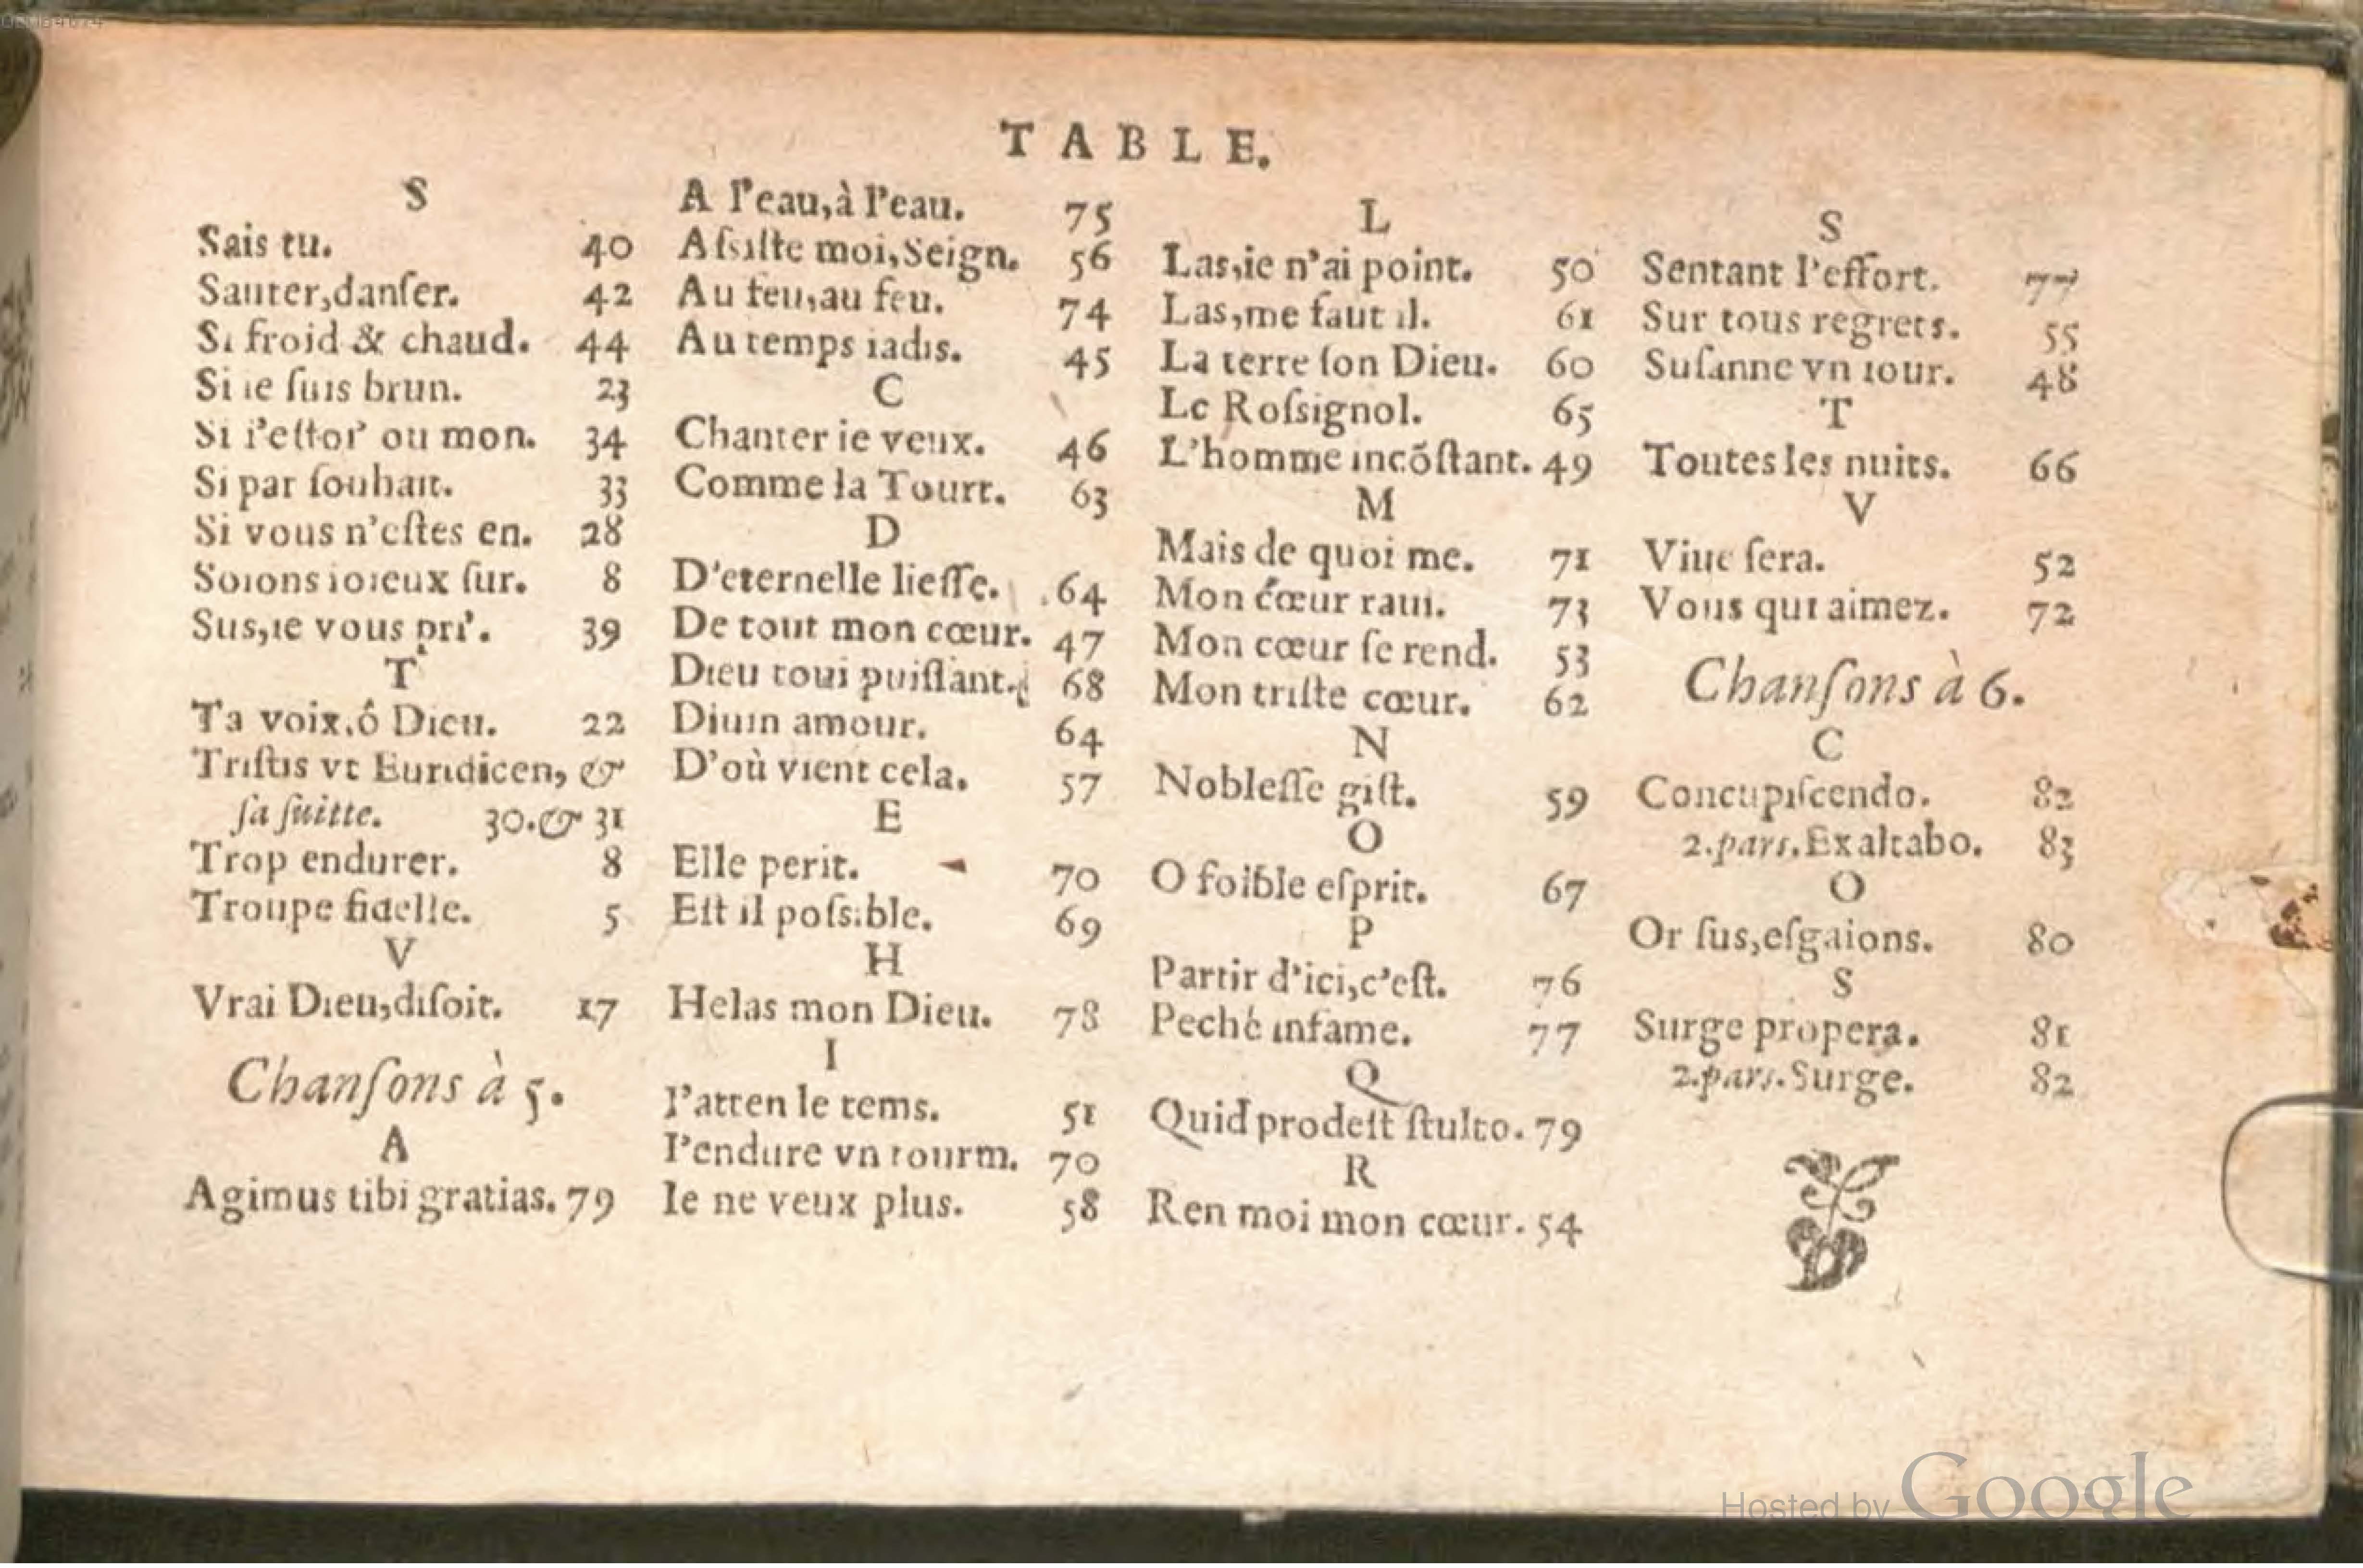 TABLE.
S
Sais tu. 40
Sauter,danſer. 42
Si froid & chaud. 44
Si ie ſuis brun. 23
Si i'eſtoi' ou mon. 34
Si par ſouhait. 33
Si vous n'eſtes en. 28
Soions ioieux ſur. 8
Sus,ie vous pri'. 39
T
Ta voix,ô Dieu. 22
Triſtis vt Euridicen, &
ſa ſuitte. 30.& 31
Trop endurer. 8
Troupe fidelle. 5
V
Vrai Dieu,diſoit. 17
Chanſons à 5.
A
Agimus tibi gratias. 79
A l'eau,à l'eau. 75
Aſsiſte moi,Seign. 56
Au feu,au feu. 74
Au temps iadis. 45
C
Chanter ie veux. 46
Comme la Tourt. 63
D
D'eternelle lieſſe. 64
De tout mon cœur. 47
Dieu tout puiſſant. 68
Diuin amour. 64
D'où vient cela. 57
E
Elle perit. 70
Eſt il poſsible. 69
H
Helas mon Dieu. 78
I
I'atten le tems. 51
I'endure vn tourm. 70
Ie ne veux plus. 58
L
Las,ie n'ai point. 50
Las,me faut il. 61
La terre ſon Dieu. 60
Le Roſsignol. 65
L'homme incõſtant. 49
M
Mais de quoi me. 71
Mon cœur raui. 73
Mon cœur ſe rend. 53
Mon triſte cœur. 62
N
Nobleſſe giſt. 59
O
O foible eſprit. 67
P
Partir d'ici,c'eſt. 76
Peché infame. 77
Q
Quid prodeſt ſtulto. 79
R
Ren moi mon cœur. 54
S
Sentant l'effort. 77
Sur tous regrets. 55
Suſanne vn iour. 48
T
Toutes les nuits. 66
V
Viue ſera. 52
Vous qui aimez. 72
Chanſons à 6.
C
Concupiſcendo. 82
2.pars.Exaltabo. 83
O
Or ſus,eſgaions. 80
S
Surge propera. 81
2.pars.Surge. 82
Hosted by Google